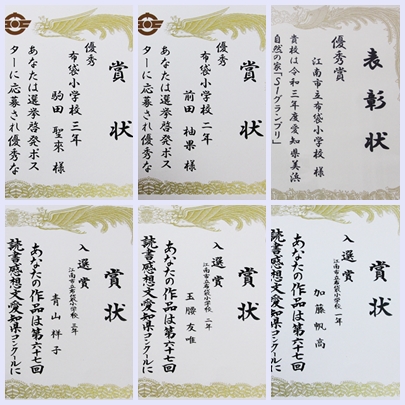 賞状
優秀
布袋小学校 三年
駒田 聖來 様
あなたは選挙啓発ポス
ターに応募され優秀な
賞状
優秀
布袋小学校 一年
前田 柚果 様
あなたは選挙啓発ポス
ターに応募され優秀な
表彰状
優秀賞
江南市立布袋小学校 様
貴校は令和三年度愛知県美浜
自然の家「S-1グランプリ」
賞状
入選賞
江南市立布袋小学校 三年
青山 祥子
あなたの作品は第六十七回
読書感想文愛知県コンクールに
賞状
入選賞
江南市立布袋小学校 二年
玉腰 友唯
あなたの作品は第六十七回
読書感想文愛知県コンクールに
賞状
入選賞
江南市立布袋小学校 一年
加藤 帆高
あなたの作品は第六十七回
読書感想文愛知県コンクールに